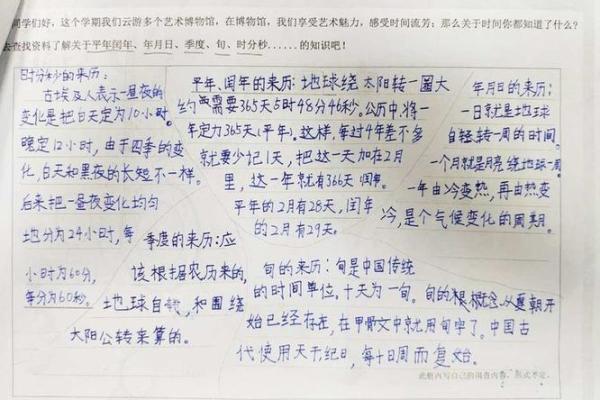 同学们好，这个学期我们云游多个艺术博物馆，在博物馆，我们享受艺术魅力，感受时间流芳；那么关于时间你都知道了什么？
去查找资料了解关于平年闰年、年月日、季度、旬、时分秒……的知识吧！
时分秒的来历：
古埃及人表示一昼夜的
变化是把白天定为10小时。
晚定12小时，由于四季的变
化，白天和黑夜的长短不一样。
后来把一昼夜变化均匀
地分为24小时，每
小时为60分，
每分为60秒。
平年、闰年的来历：地球绕太阳转一圈大
约需要365天5时48分46秒。公历中，将一
年定为365天（平年）。这样，每过4年差不多
就要少记1天，把这一天加在2月
里，这一年就有366天 闰年。
平年的2月有28天，闰年
的2月有29天。
年月日的来历：
一日就是地球
自轻转一周的时间。
一个月就是月亮绕地球一周。
一年由冷变热，再由热变
冷，是个气候变化的周期。
季度的来历：应
该根据农历来的，
地球自转，和围绕
太阳公转来算的。
旬的来历：旬是中国传统
的时间单位，十天为一旬。旬的概念从夏朝开
始已经存在，在甲骨文中就用旬字了。中国古
代使用天干纪日，每十日周而复始。
此框内写自己的调查内容，形式不定。